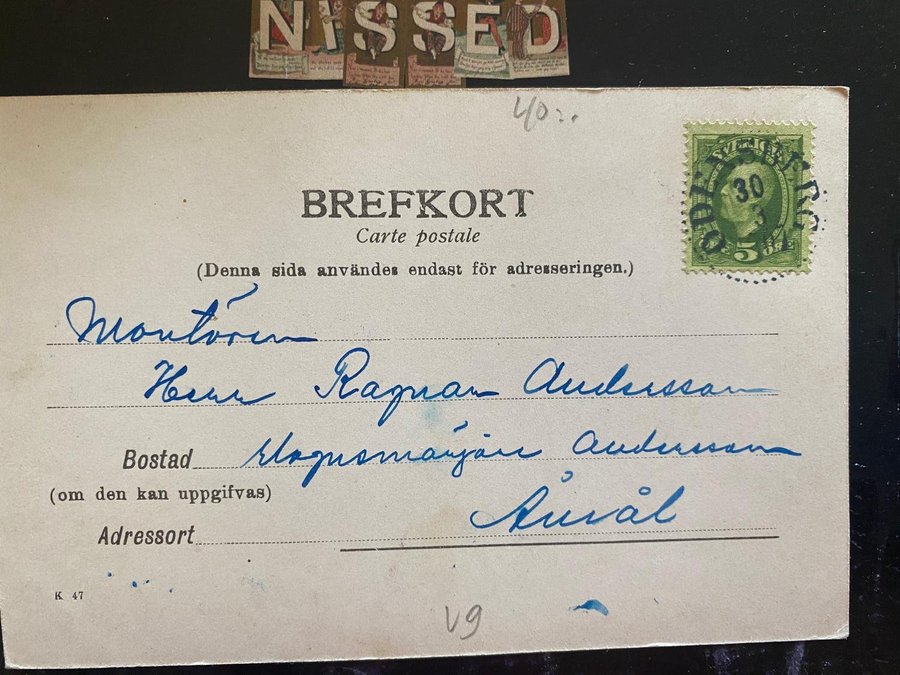 NISSED
40:-
SVERIGE
30
5 ÖRE
BREFKORT
Carte postale
(Denna sida användes endast för adresseringen.)
Montören
Herr Ragnar Andersson
Bostad Andersson
(om den kan uppgifvas)
Åmål
Adressort
K 47
V9